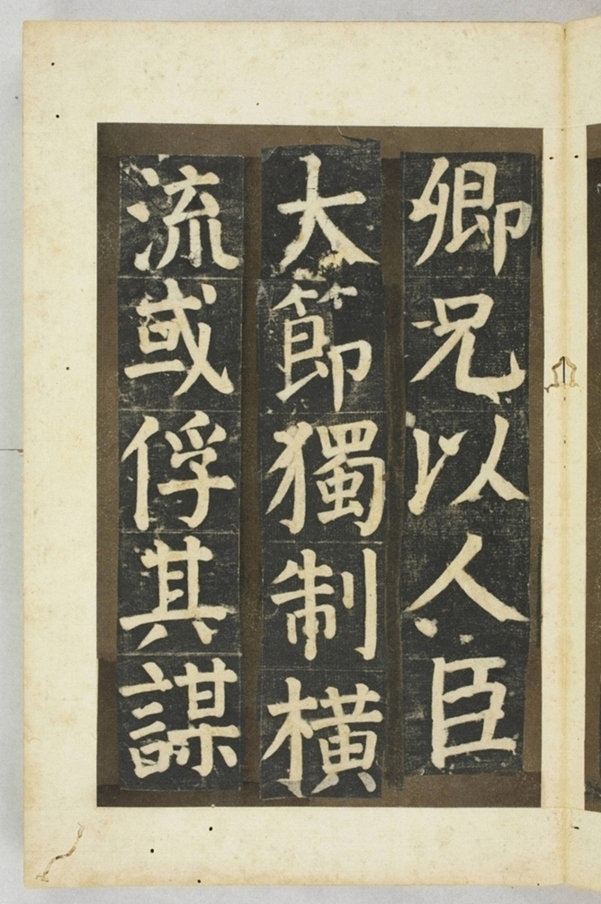 卿兄以人臣
大節獨制橫
流或俘其謀